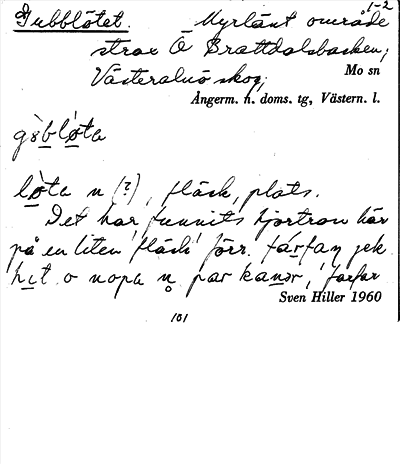 1-2
Gubblötet. Myrlänt område
strax Ö Brattdalsbacken,
Västeralnö skog,
Mo sn
Ångerm. n. doms. tg, Västern. l.
gọ̀blọ̀ta
lọ̀ta n (?), fläck, plats.
Det har funnits hjortron här
på en liten 'fläck' förr. farfaṇ jek
hit o nopa n par kanor, 'farfar
Sven Hiller 1960
101